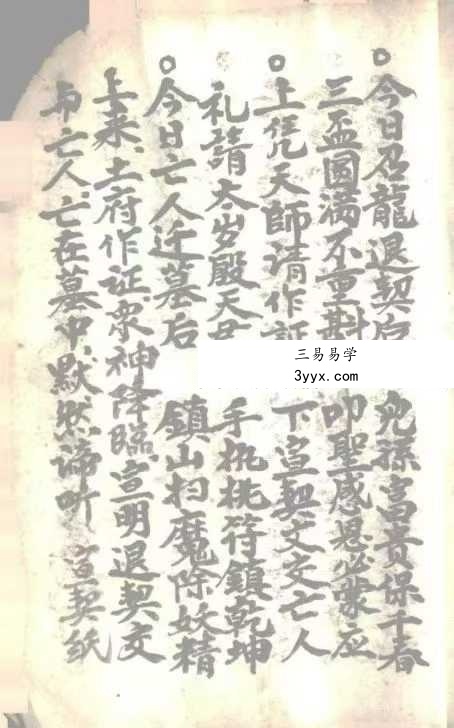 ○今日召龍退契后 兒孫富貴保千春
三盃圆满不重斟 叩聖感恩必蒙应
○上凭天師请作証 下宣契文文亡人
礼請太岁殿天君 手执桃符鎮乾坤
○今日亡人迁墓后 鎮山扫魔除妖精
上来土府作证 众神降臨 宣明退契文
亡人 亡在墓中 默然谛听 宣契纸
三易易学
3yyx.com